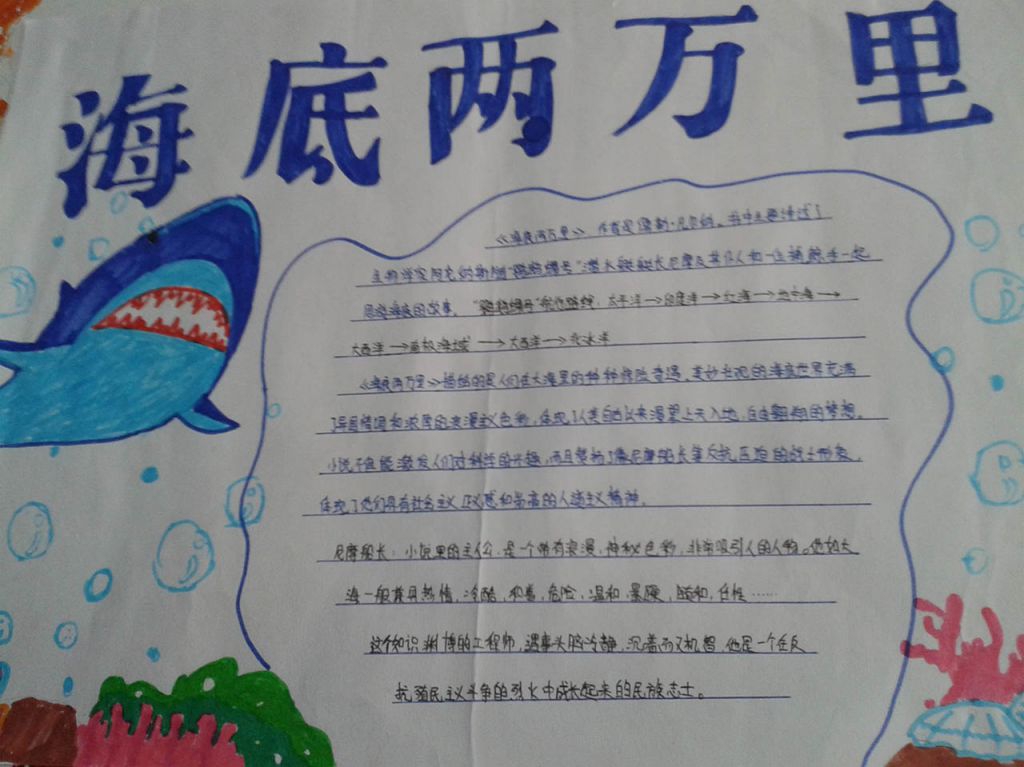 海底两万里
《海底两万里》作者是儒勒·凡尔纳。书中主要讲述了
生物学家阿龙纳斯随"鹦鹉螺号"潜水艇艇长尼摩及其仆人和一位捕鲸手一起
周游海底的故事。"鹦鹉螺号"航行路线：太平洋→印度洋→红海→地中海→
大西洋→南极海域→大西洋→北冰洋
《海底两万里》描绘的是人们在大海里的种种惊险奇遇。美妙壮观的海底世界充满
了异国情调和浓厚的浪漫主义色彩，体现了人类自古以来渴望上天入地，自由翱翔的梦想。
小说不但能激发人们对科学的兴趣，而且赞扬了像尼摩船长等反抗压迫的战士形象，
体现了他们具有社会主义正义感和崇高的人道主义精神。
尼摩船长：小说里的主人公，是一个带有浪漫，神秘色彩，非常吸引人的人物。他如大
海一般兼具热情，冷酷，和蔼，危险，温和，暴戾，随和，任性……
这个知识渊博的工程师，遇事头脑冷静，沉着而又机智，他是一个在反
抗殖民主义斗争的烈火中成长起来的民族志士。